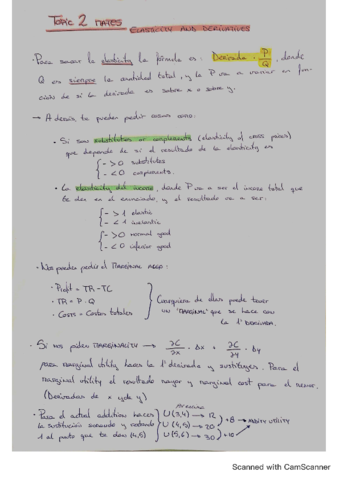 TOPIC 2 MATES
ELASTICITY AND DERIVATIVES
· Para sacar la elasticity la fórmula es: Derivada · P/Q, donde
Q es siempre la cantidad total, y la P va a variar en fun-
ción de si la derivada es sobre x o sobre y.
→ A demás te pueden pedir cosas como:
· Si son substitutes or complements (elasticity of cross prices)
que depende de si el resultado de la elasticity es
- > 0 substitutes
- < 0 complements.
· La elasticity del income, donde P va a ser el income total que
te dan en el enunciado, y el resultado va a ser:
- > 1 elastic
- < 1 inelastic
- > 0 normal good
- < 0 inferior good
· Nos pueden pedir el MARGINAL
· Profit = TR - TC
· TR = P · Q
· Costs = Costes totales
Cualquiera de ellas puede tener
un "MARGINAL" que se hace con
la 1ª DERIVADA.
· Si nos piden MARGINALITY → ∂C/∂x · Δx + ∂C/∂y · Δy
para marginal utility haces la 1ª derivada y sustituyes. Para el
marginal utility el resultado mayor y marginal cost para el menor.
(Derivadas de x y de y)
· Para el actual addition haces
la sustitución sumando y restando
1 al punto que te dan (4,5)
U (3,4) → 12
U (4,5) → 20
U (5,6) → 30
+8
+10
UTILITY
Scanned with CamScanner